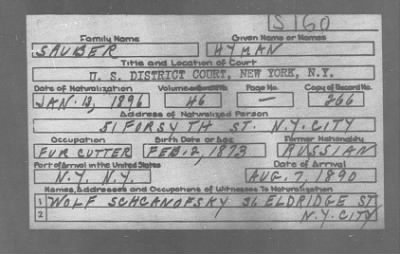 S160
Family Name Given Name or Names
SAUBER HYMAN
Title and Location of Court
U. S. DISTRICT COURT, NEW YORK, N.Y.
Date of Naturalization Volume or Bundle No. Page No. Copy of Record No.
JAN. 13, 1896 46 — 266
Address of Naturalized Person
51 FORSYTH ST. N.Y. CITY
Occupation Birth Date or Age Former Nationality
FUR CUTTER FEB. 2, 1873 RUSSIAN
Port of Arrival in the United States Date of Arrival
N.Y. N.Y. AUG. 7, 1890
Names, Addresses and Occupations of Witnesses To Naturalization
1 WOLF SCHCANOFSKY 36 ELDRIDGE ST.
2 N.Y. CITY